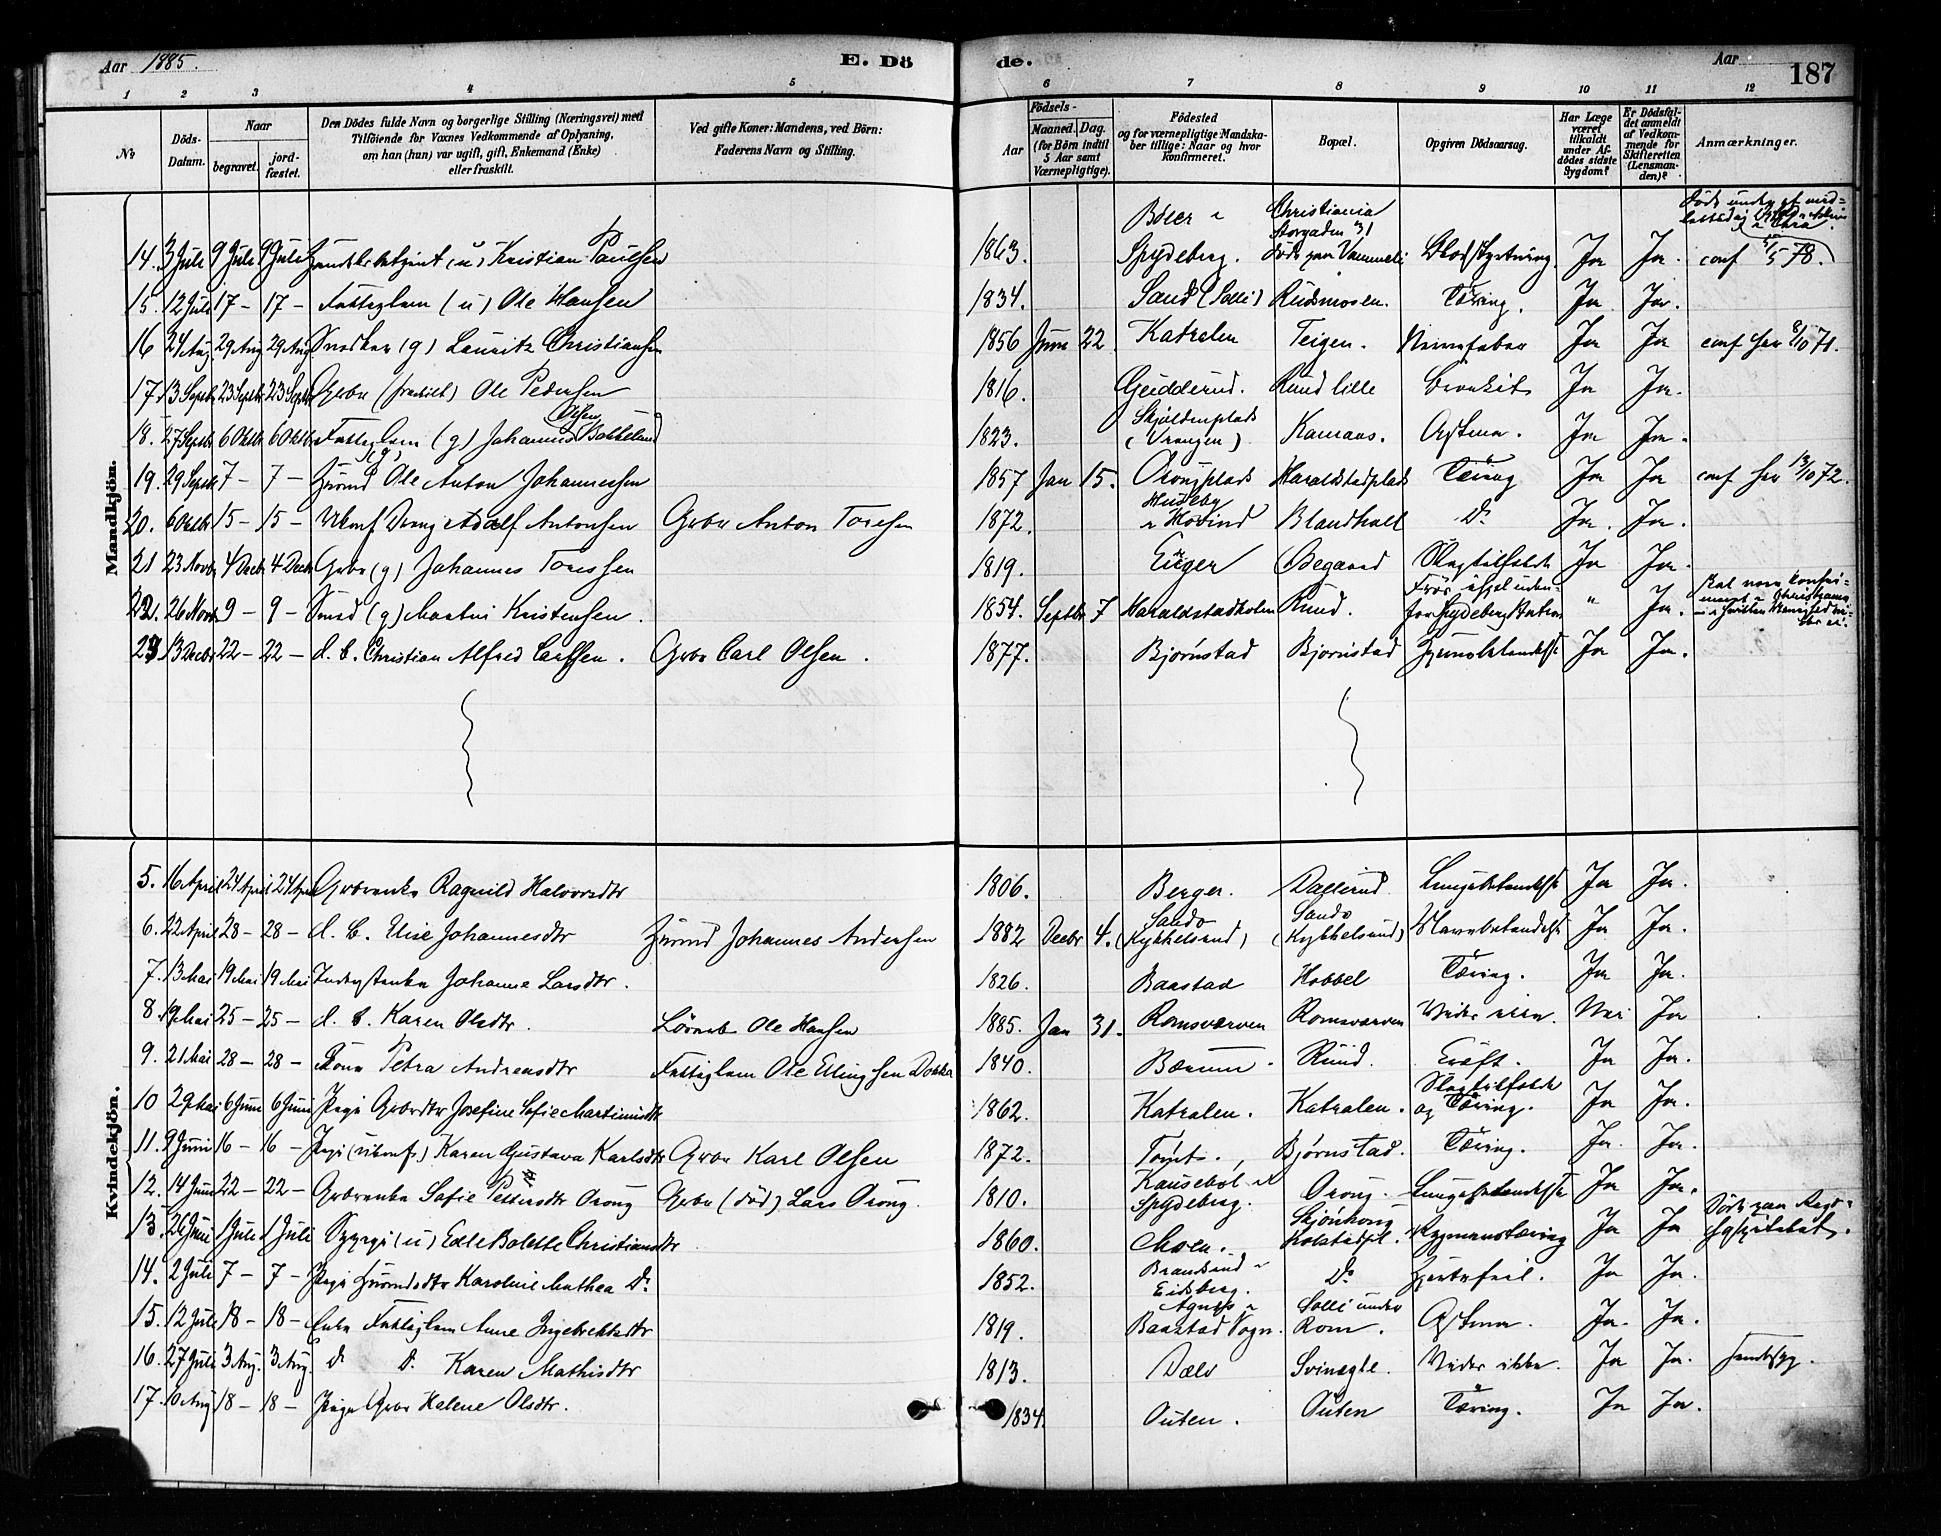 Aar 1885.
E. Dö
de.
Aar
187
1 2 3 4 5 6 7 8 9 10 11 12
No
Döds-Datum.
Naar
begravet.
jord-fæstet.
Den Dödes fulde Navn og borgerlige Stilling (Næringsvei) med
Tilföiende for Voxnes Vedkommende af Oplysning,
om han (hun) var ugift, gift, Enkemand (Enke)
eller fraskilt.
Ved gifte Koner: Mandens, ved Börn:
Faderens Navn og Stilling.
Födsels-
Aar
Maaned. Dag.
(for Börn indtil
5 Aar samt
Værnepligtige).
Födested
og for værnepligtige Mandska-
ber tillige: Naar og hvor
konfirmeret.
Bopæl.
Opgiven Dödsaarsag.
Har Læge
været
tilkaldt
under Af-
dödes sidste
Sygdom?
Er Dödsfal-
det anmeldt
af Vedkom-
mende for
Skifteretten
(Lensman-
den)?
Anmærkninger.
Mandkjön.
14. 3 Juli 9 Juli 9 Juli (u) Kristian Paulsen 1863. Spydeberg. Christiania Storgaden 31 Ja Ja. conf 5 78.
15. 12 Juli 17 – 17 – Fattiglem (u) Ole Hansen 1834. Sand (Solli) Rudsmosen. Tæring. Ja Ja.
16 24 Aug 29 Aug 29 Aug Snedker (g) Lauritz Christiansen 1856 Juni 22 Katralen Teigen. Nervefeber Ja Ja conf her 8/10 71.
17. 13 Septbr 23 Septbr 23 Septbr Gbr (fraskilt) Ole Pedersen 1816. Geidderud. Rund lille Bronkit Ja Ja.
18. 27 Septbr 6 Oktbr 6 Oktbr Fattiglem (g) Johannes Olsen Bakkelund 1823. Skjöldenplads (Vrangen) Kamaas. Astma. Ja Ja.
19. 29 Septbr 7 – 7 – Husmd (g) Ole Anton Johannessen 1857 Jan 15. Orongplads Haraldstadplads Tæring Ja Ja conf her 13/10 72.
20. 6 Oktbr 15 – 15 – Ukonf Dreng Adolf Antonsen Gbr Anton Toresen 1872. Huseby i Hovind Blandhall Do Ja. Ja.
21 23 Novbr 4 Decbr 4 Decbr Gbr (g) Johannes Toresen 1819. Enger Ødegaard Slagtilfælde Ja Ja.
22. 26 Novbr 9 – 9 – Smed (g) Martin Kristensen. 1854. Septbr 7 Haraldstadholm Rund. for Spydeberg Station " Ja.
23 13 Decbr 22 – 22 – d. b. Christian Alfred Carlsen. Gbr Carl Olsen. 1877. Bjørnstad Bjornstad Ja Ja.
Kvindekjön.
5. 16 April 24 April 24 April Gbrenke Ragnild Halvorsdtr 1806. Berger. Dallerud Lungebetændelse Ja Ja.
6. 22 April 28 – 28 – d. b. Elise Johannesdtr Husmd Johannes Andersen 1882 Decbr 4. Sando (Kykkelsrud) Sando (Kykkelsrud) Ja Ja.
7. 13 Mai 19 Mai 19 Mai Inderstenke Johanne Larsdtr. 1826. Baastad Hobbel Tæring. Ja Ja.
8. 19 Mai 25 – 25 – d. b. Karen Olsdtr. Lörneb Ole Hansen 1885. Jan 31. Romsværven Romsværven Nei Ja
9. 21 Mai 28 – 28 – Kone Petra Andreasdtr Fattiglem Ole Ellingsen Dokka 1840. Bærum. Rund. Ja Ja.
10 29 Mai 6 Juni 6 Juni Pige Gbrdtr Josefine Sofie Martinusdtr 1862. Katralen. Katralen. Slagtilfælde og Tæring. Ja Ja.
11. 9 Juni 16 – 16 – Pige (ukonf.) Karen Gustava Karlsdtr Gbr Karl Olsen 1872. Tomt. Bjørnstad. Tæring. Ja. Ja.
12. 14 Juni 22 – 22 – Gbrenke Sofie Pettersdtr Orong Gbr (död) Lars Orong. 1810. Kauseböl i Spydeberg. Orong. Lungebetændelse Ja Ja.
13. 26 Juni 1 Juli 1 Juli Sypige (u) Edle Bolette Christiansdtr 1860. Moen. Skjönhaug Holstadpl. Rygmarvstæring Ja Ja hospitalet.
14. 2 Juli 7 – 7 – Pige Husmdsdtr Karoline Mathea Do 1852. Brandsrud i Eidsberg. Do Hjertefeil. Ja Ja.
15. 12 Juli 18 – 18 – Enke Fattiglem Anne Ingebrektsdtr 1819. Agnes i Baastad Sogn. Solli under Rom. Astma. Ja. Ja.
16. 27 Juli 3 Aug. 3 Aug. do do Karen Mathisdtr 1813. Dælo Svinegle. Vides ikke. Ja Ja.
17. 10 Aug 18 – 18 – Pige Gbr Helene Olsdtr. 1834. Outen. Outen Tæring. Ja Ja.